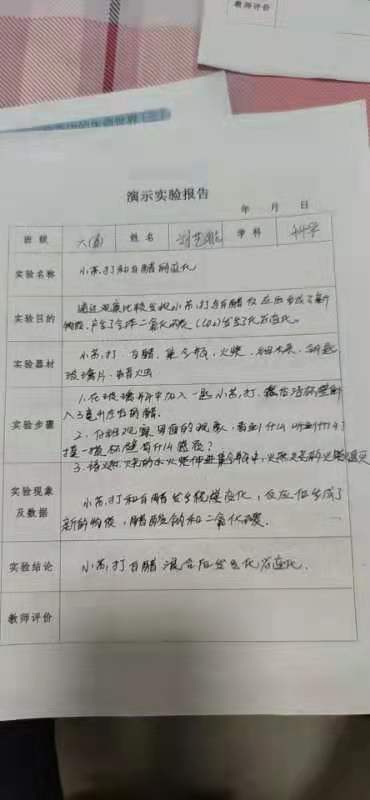 教师评价
演示实验报告
年 月 日
班级 六 姓名 学科 科学
实验名称 小苏打和白醋的变化
实验目的 通过观察比较发现小苏打与白醋反应后生成了新
物质，产生了气体二氧化碳（CO2）发生了化学变化。
实验器材 小苏打 白醋、集气瓶、火柴、细木条、
玻璃片、
实验步骤 1、在玻璃杯中加入一匙小苏打，
入 毫升左右的醋。
2、仔细观察 的现象，看到什么 听到什么？
摸一摸杯壁有什么感受？
3、
实验现象
及数据 小苏打和白醋发生 变化，反应后生成了
新的物质，醋酸钠和二氧化碳。
实验结论 小苏打白醋混合后发生化学变化.
教师评价